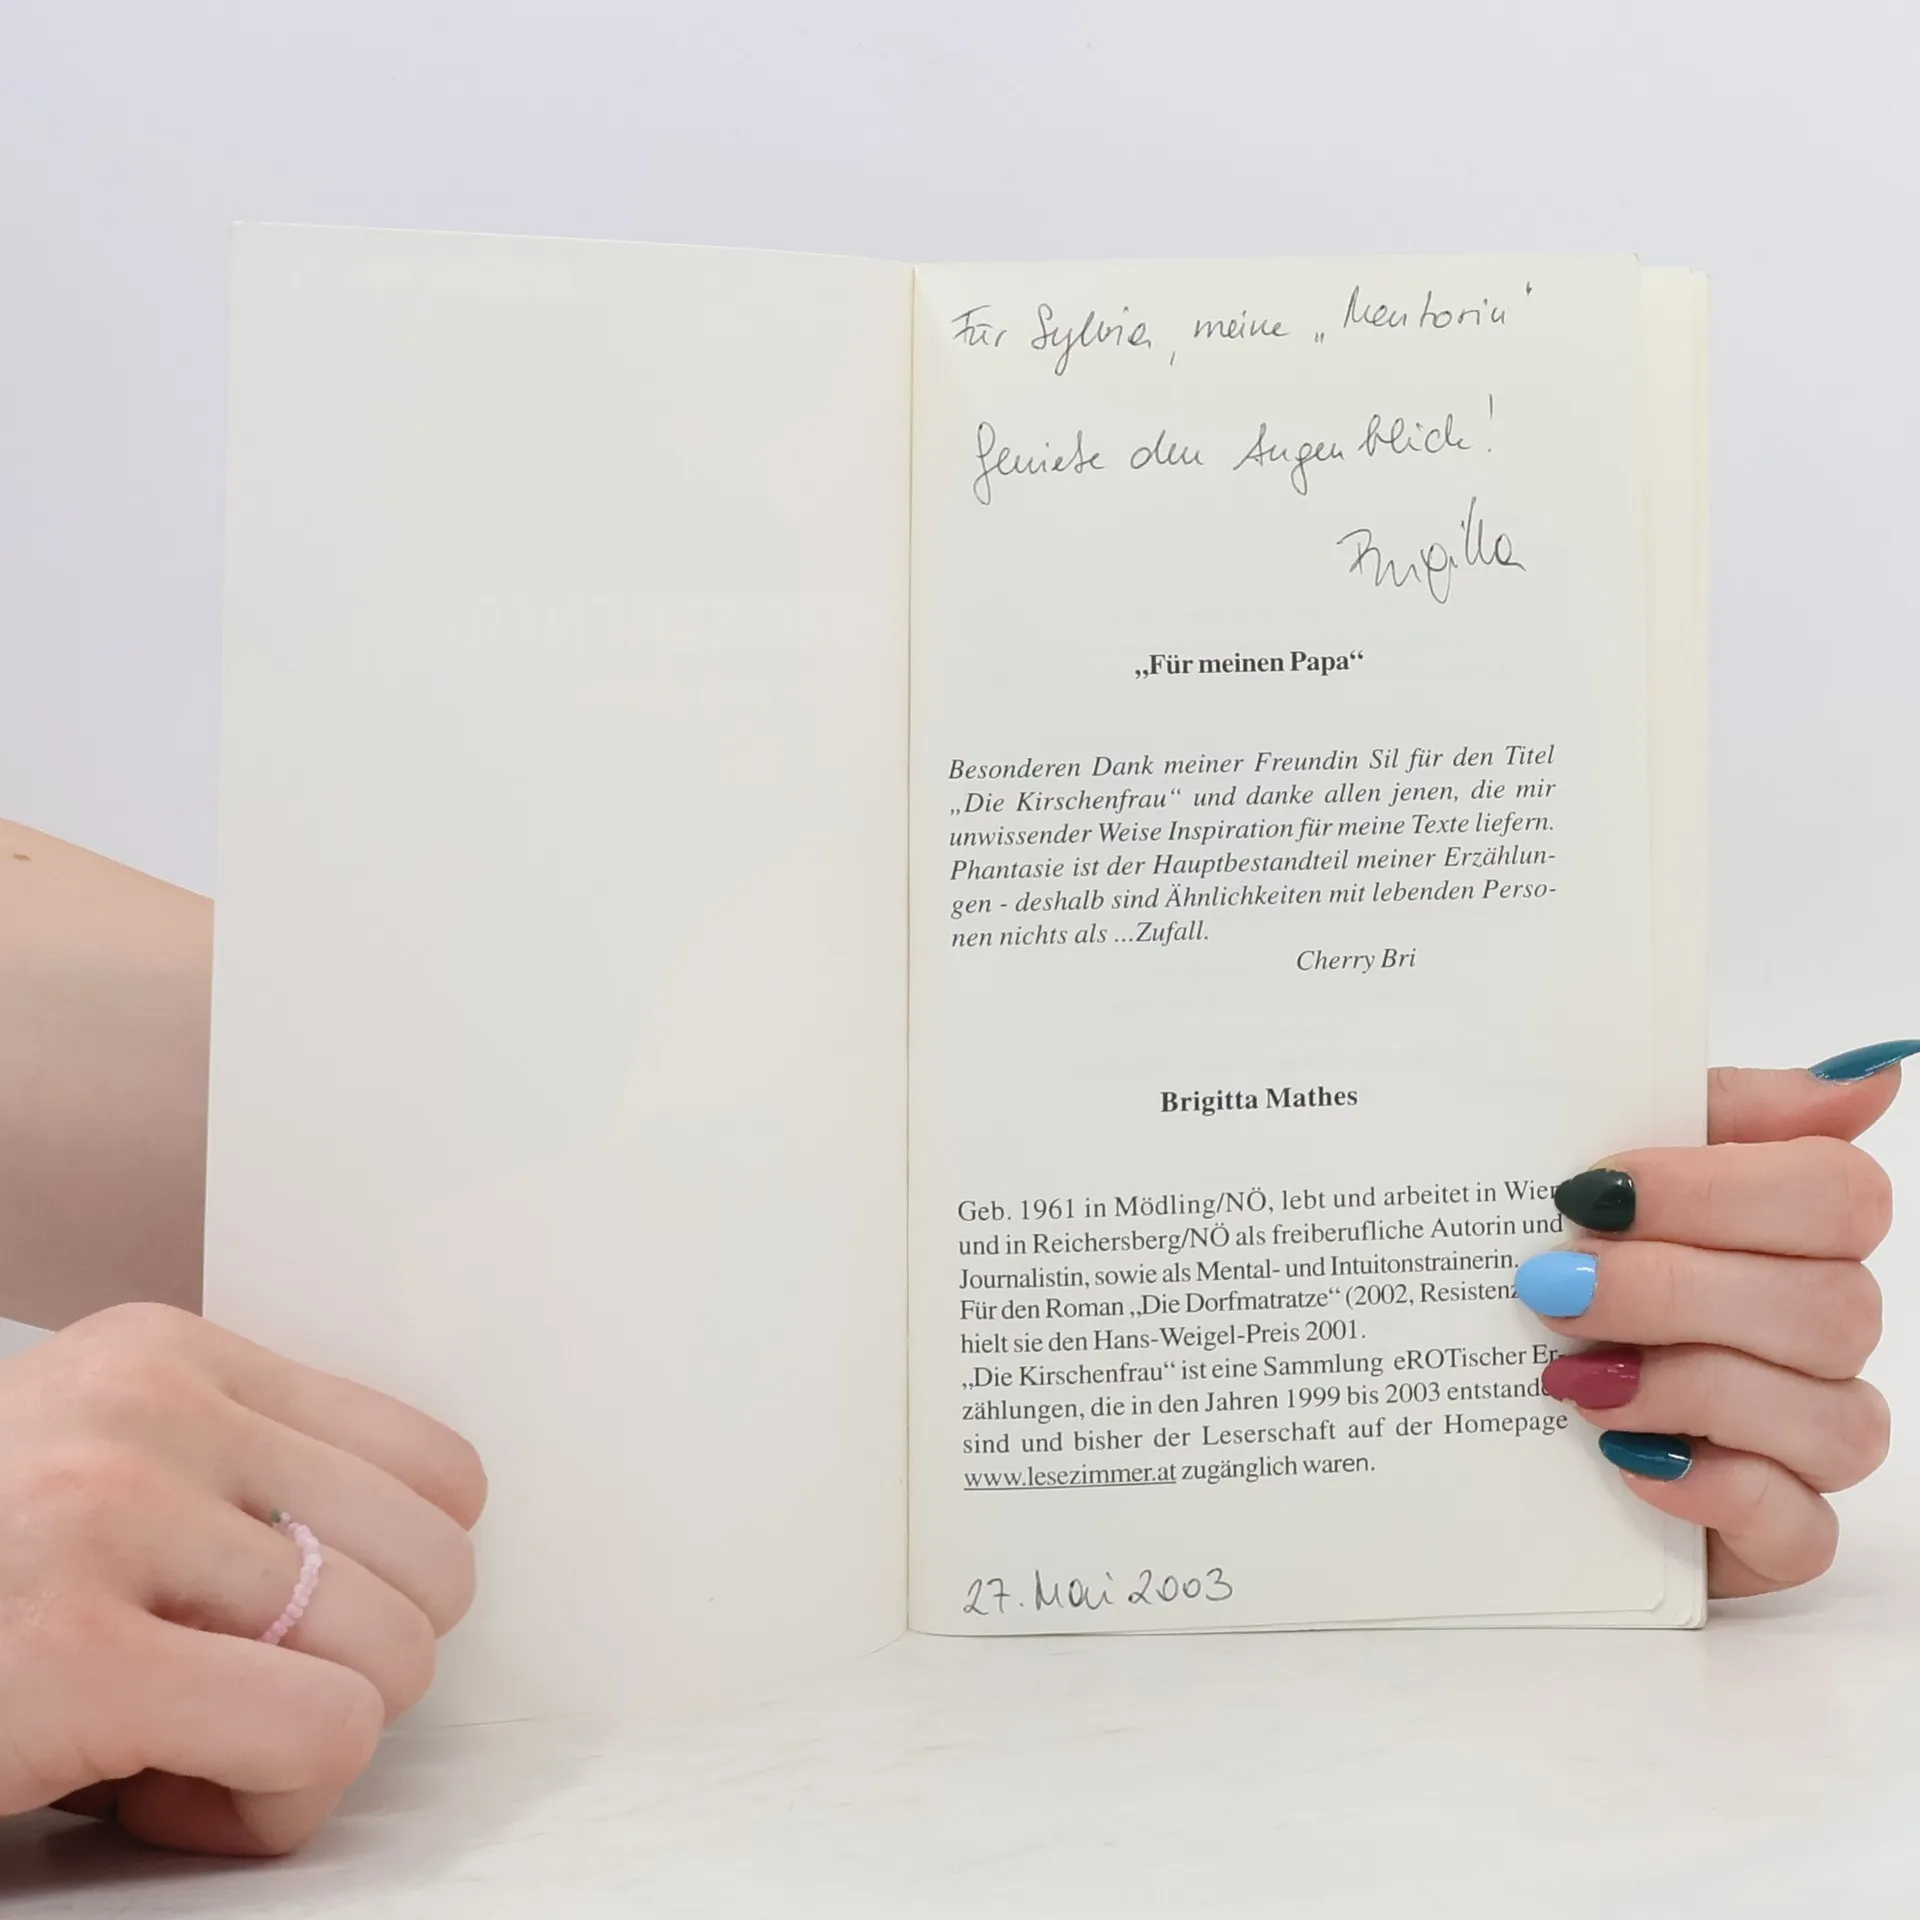 Für Sylvia, meine „Mentorin“
Genieße den Augenblick!
Brigitta
„Für meinen Papa“
Besonderen Dank meiner Freundin Sil für den Titel
„Die Kirschenfrau“ und danke allen jenen, die mir
unwissender Weise Inspiration für meine Texte liefern.
Phantasie ist der Hauptbestandteil meiner Erzählun-
gen - deshalb sind Ähnlichkeiten mit lebenden Perso-
nen nichts als ...Zufall.
Cherry Bri
Brigitta Mathes
Geb. 1961 in Mödling/NÖ, lebt und arbeitet in Wien
und in Reichersberg/NÖ als freiberufliche Autorin und
Journalistin, sowie als Mental- und Intuitonstrainerin.
Für den Roman „Die Dorfmatratze“ (2002, Resistenz
hielt sie den Hans-Weigel-Preis 2001.
„Die Kirschenfrau“ ist eine Sammlung eROTischer Er-
zählungen, die in den Jahren 1999 bis 2003 entstande
sind und bisher der Leserschaft auf der Homepage
www.lesezimmer.at zugänglich waren.
27. Mai 2003